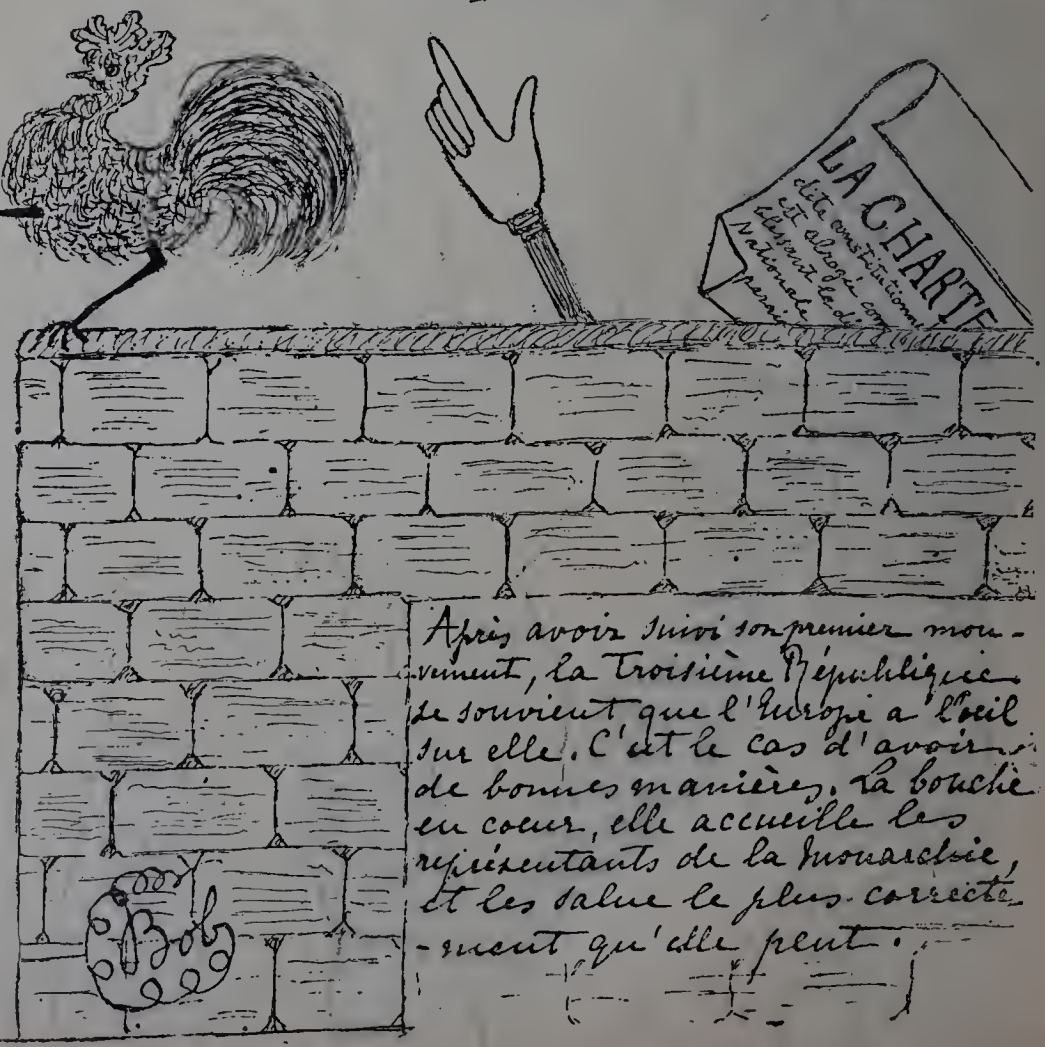 LA CHARTE
dite constitutionne
est abrogée com
blessant la di
Nationale
parais
Après avoir suivi son premier mou-
vement, la Troisième République
se souvient que l'Europe a l'oeil
sur elle. C'est le cas d'avoir
de bonnes manières. La bouche
en coeur, elle accueille les
représentants de la Monarchie,
et les salue le plus correcte
-ment qu'elle peut.
Bob